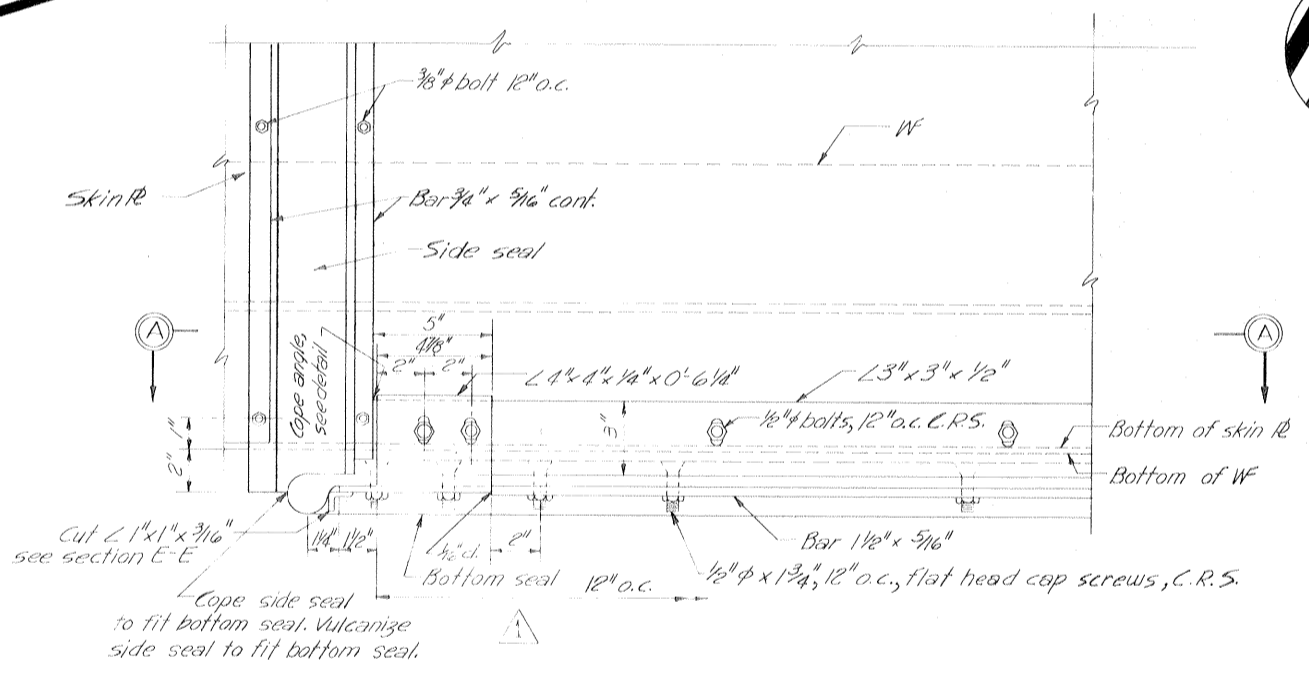 3/8"φ bolt 12" o.c.
WF
Skin ℄
Bar 3/4" x 5/16" cont.
Side seal
A
A
5"
4 7/8"
2" 2"
Cope angle,
see detail
∠4"x4"x1/4"x0'-6 1/4"
∠3"x3"x1/2"
1"
2"
3"
1/2"φ bolts, 12" o.c. C.R.S.
Bottom of skin ℄
Bottom of WF
Cut ∠1"x1"x3/16"
see section E-E
1 1/4" 1 1/2"
cl.
2"
Bar 1 1/2" x 5/16"
Bottom seal
12" o.c.
1/2"φ x 1 3/4", 12" o.c., flat head cap screws, C.R.S.
Cope side seal
to fit bottom seal. Vulcanize
side seal to fit bottom seal.
1